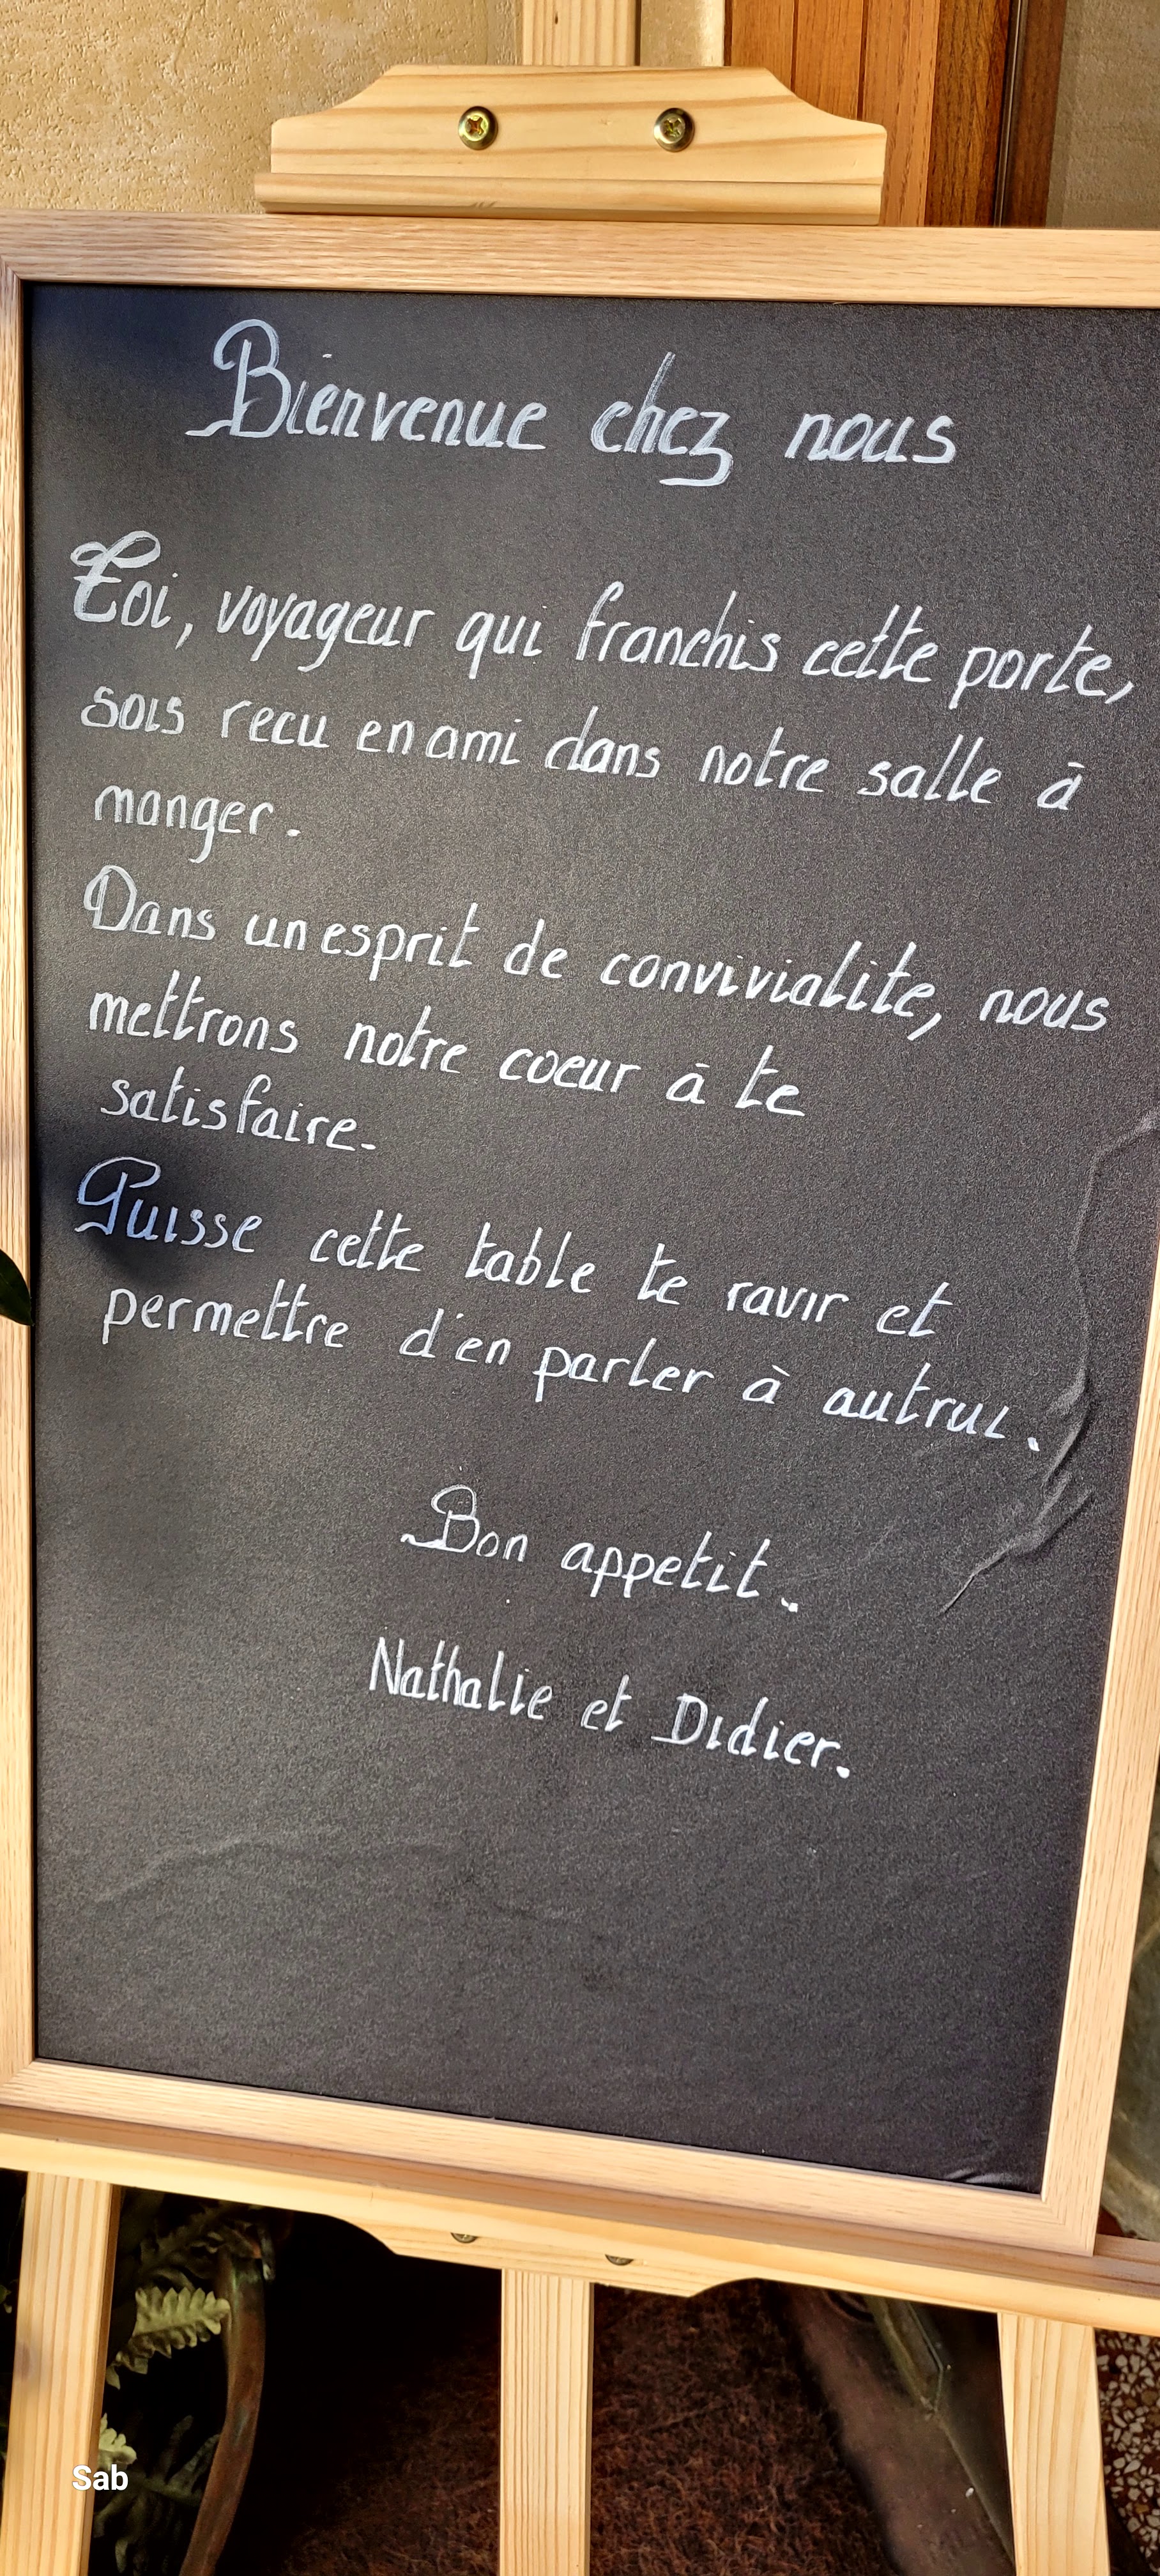 Bienvenue chez nous
Toi, voyageur qui franchis cette porte,
sois recu en ami dans notre salle à
manger.
Dans un esprit de convivialite, nous
mettrons notre coeur à te
satisfaire.
Puisse cette table te ravir et
permettre d'en parler à autrui.
Bon appetit.
Nathalie et Didier.
Sab